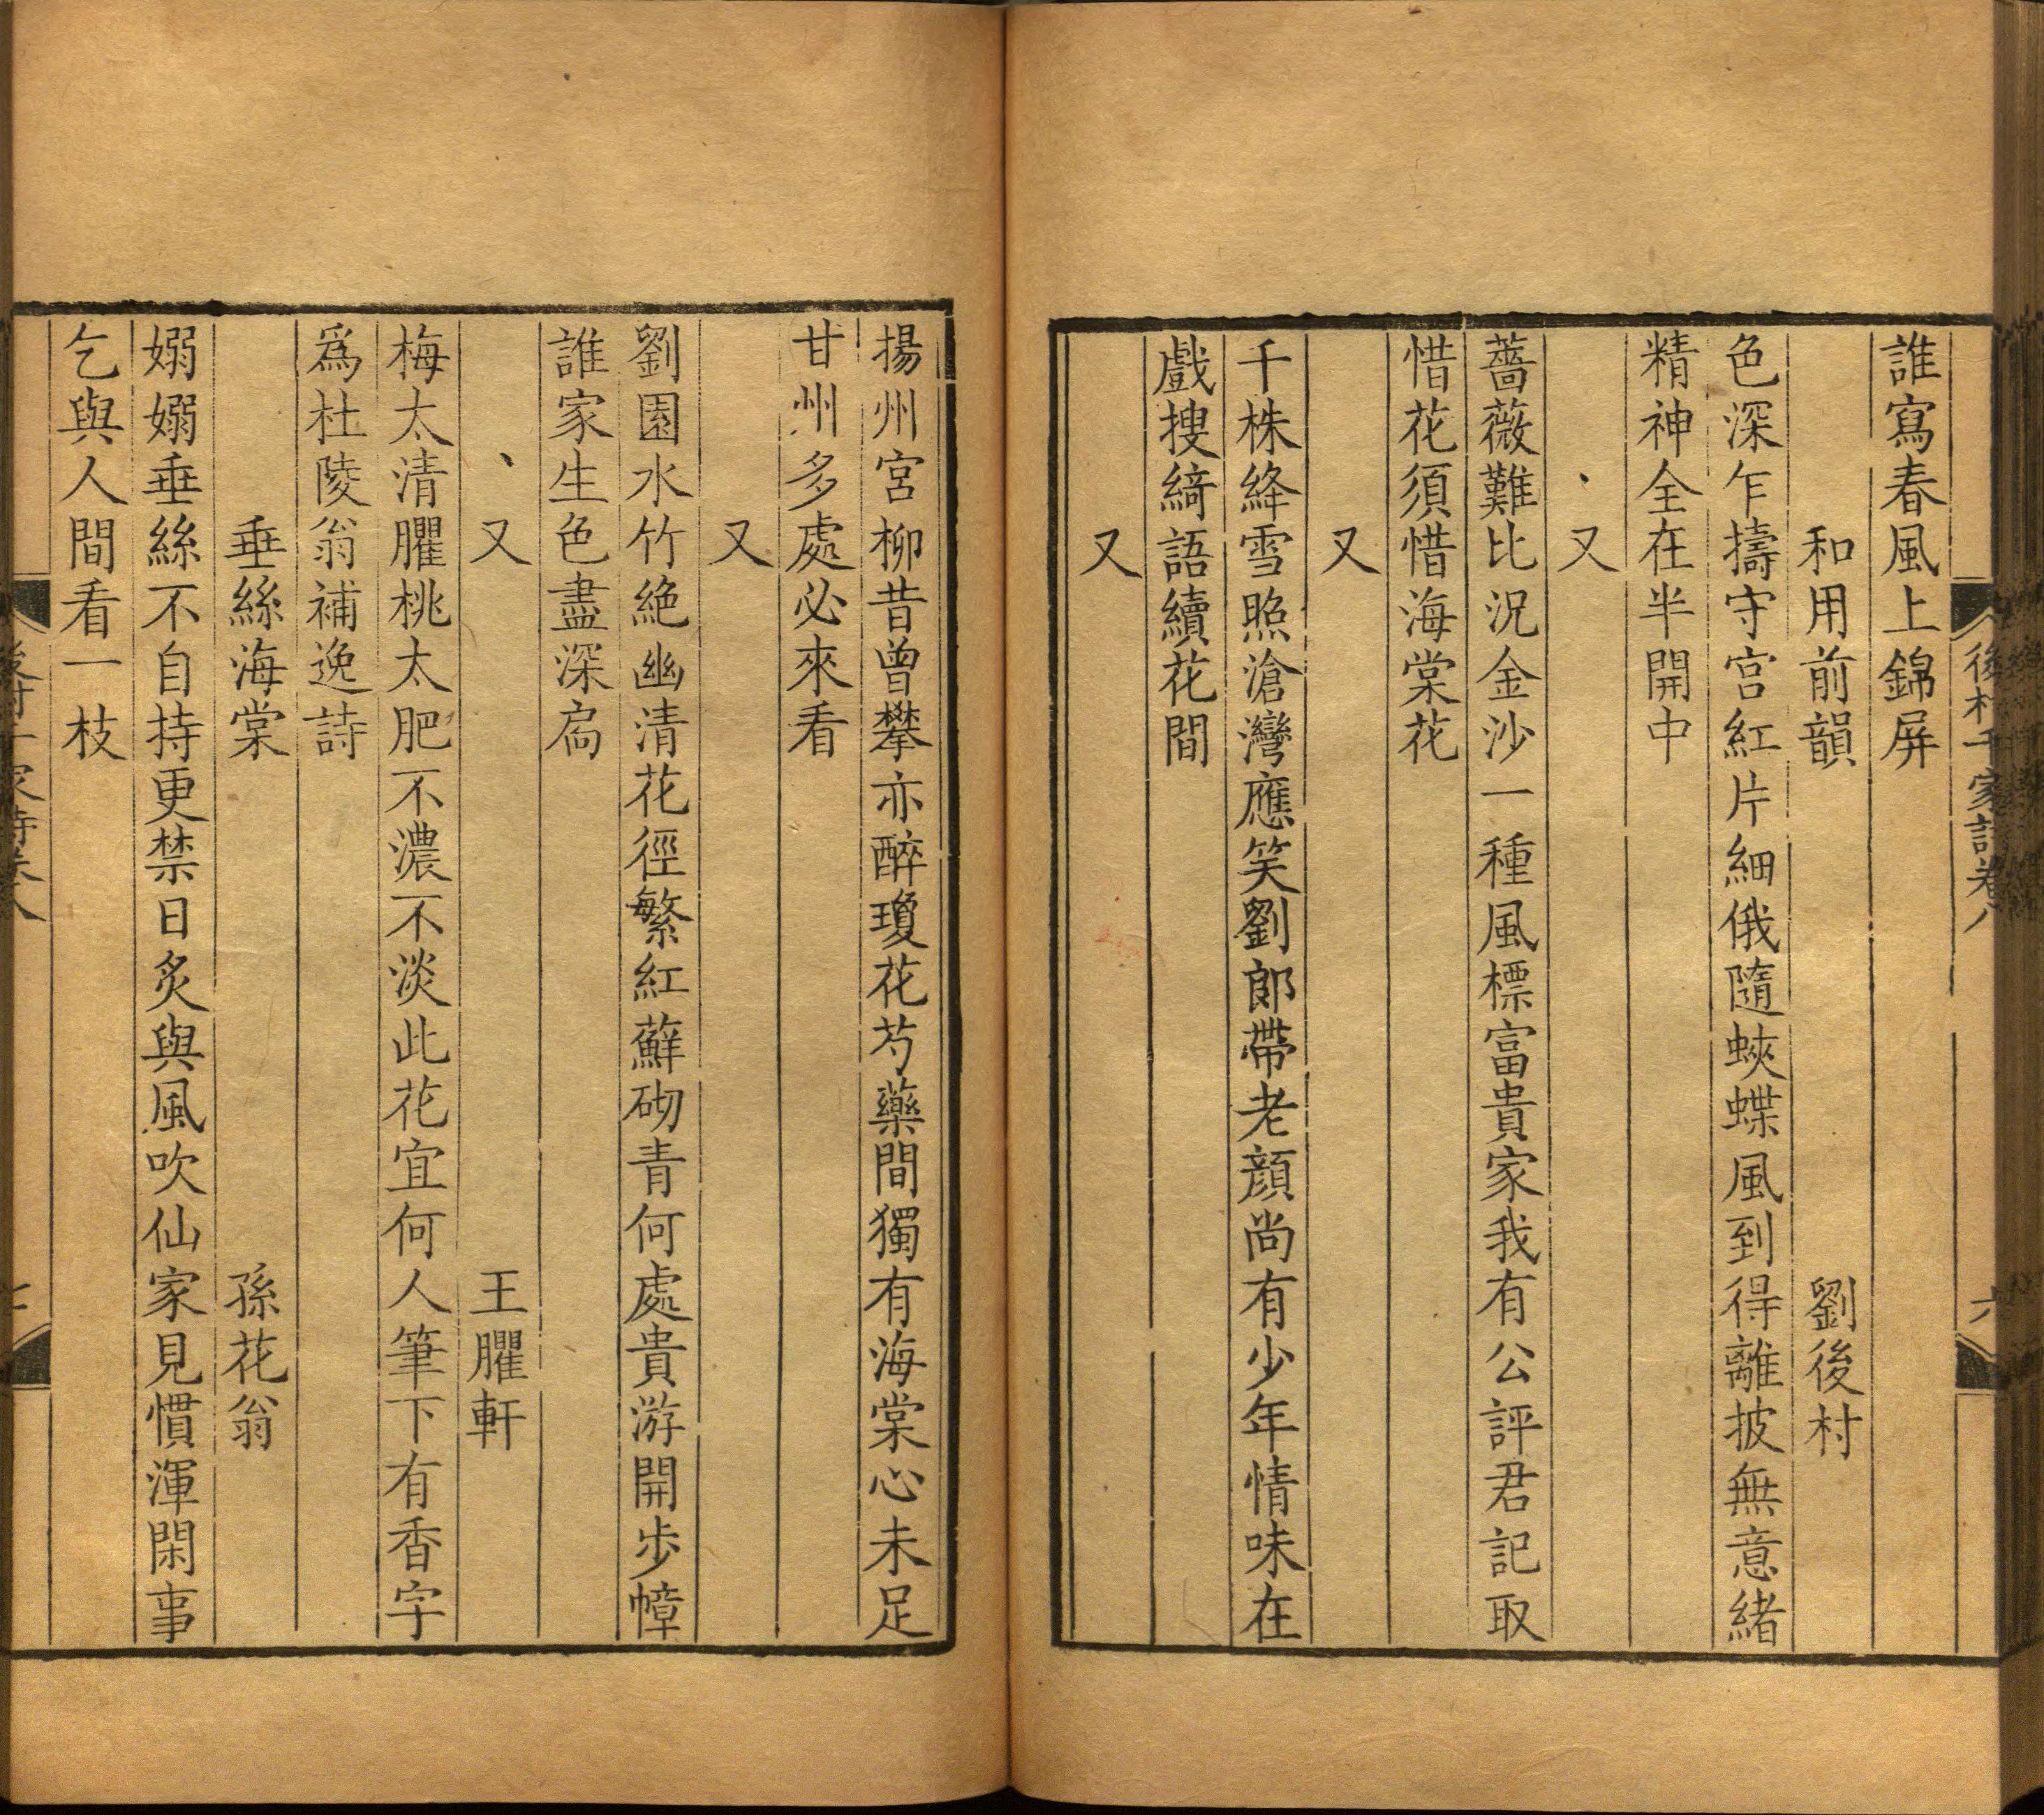 後村千家詩卷八
六
誰寫春風上錦屏
和用前韻 劉後村
色深乍擣守宮紅片細俄隨蛺蝶風到得離披無意緒
精神全在半開中
又
薔薇難比況金沙一種風標富貴家我有公評君記取
惜花須惜海棠花
又
千株絳雪照滄灣應笑劉郎帶老顏尚有少年情味在
戲搜綺語續花間
又
揚州宮柳昔曾攀亦醉瓊花芍藥間獨有海棠心未足
甘州多處必來看
又
劉園水竹絕幽清花徑繁紅蘚砌青何處貴游開步幛
誰家生色盡深扃
又 王臞軒
梅太清臞桃太肥不濃不淡此花宜何人筆下有香字
爲杜陵翁補逸詩
垂絲海棠 孫花翁
嫋嫋垂絲不自持更禁日炙與風吹仙家見慣渾閑事
乞與人間看一枝
後村千家詩卷八